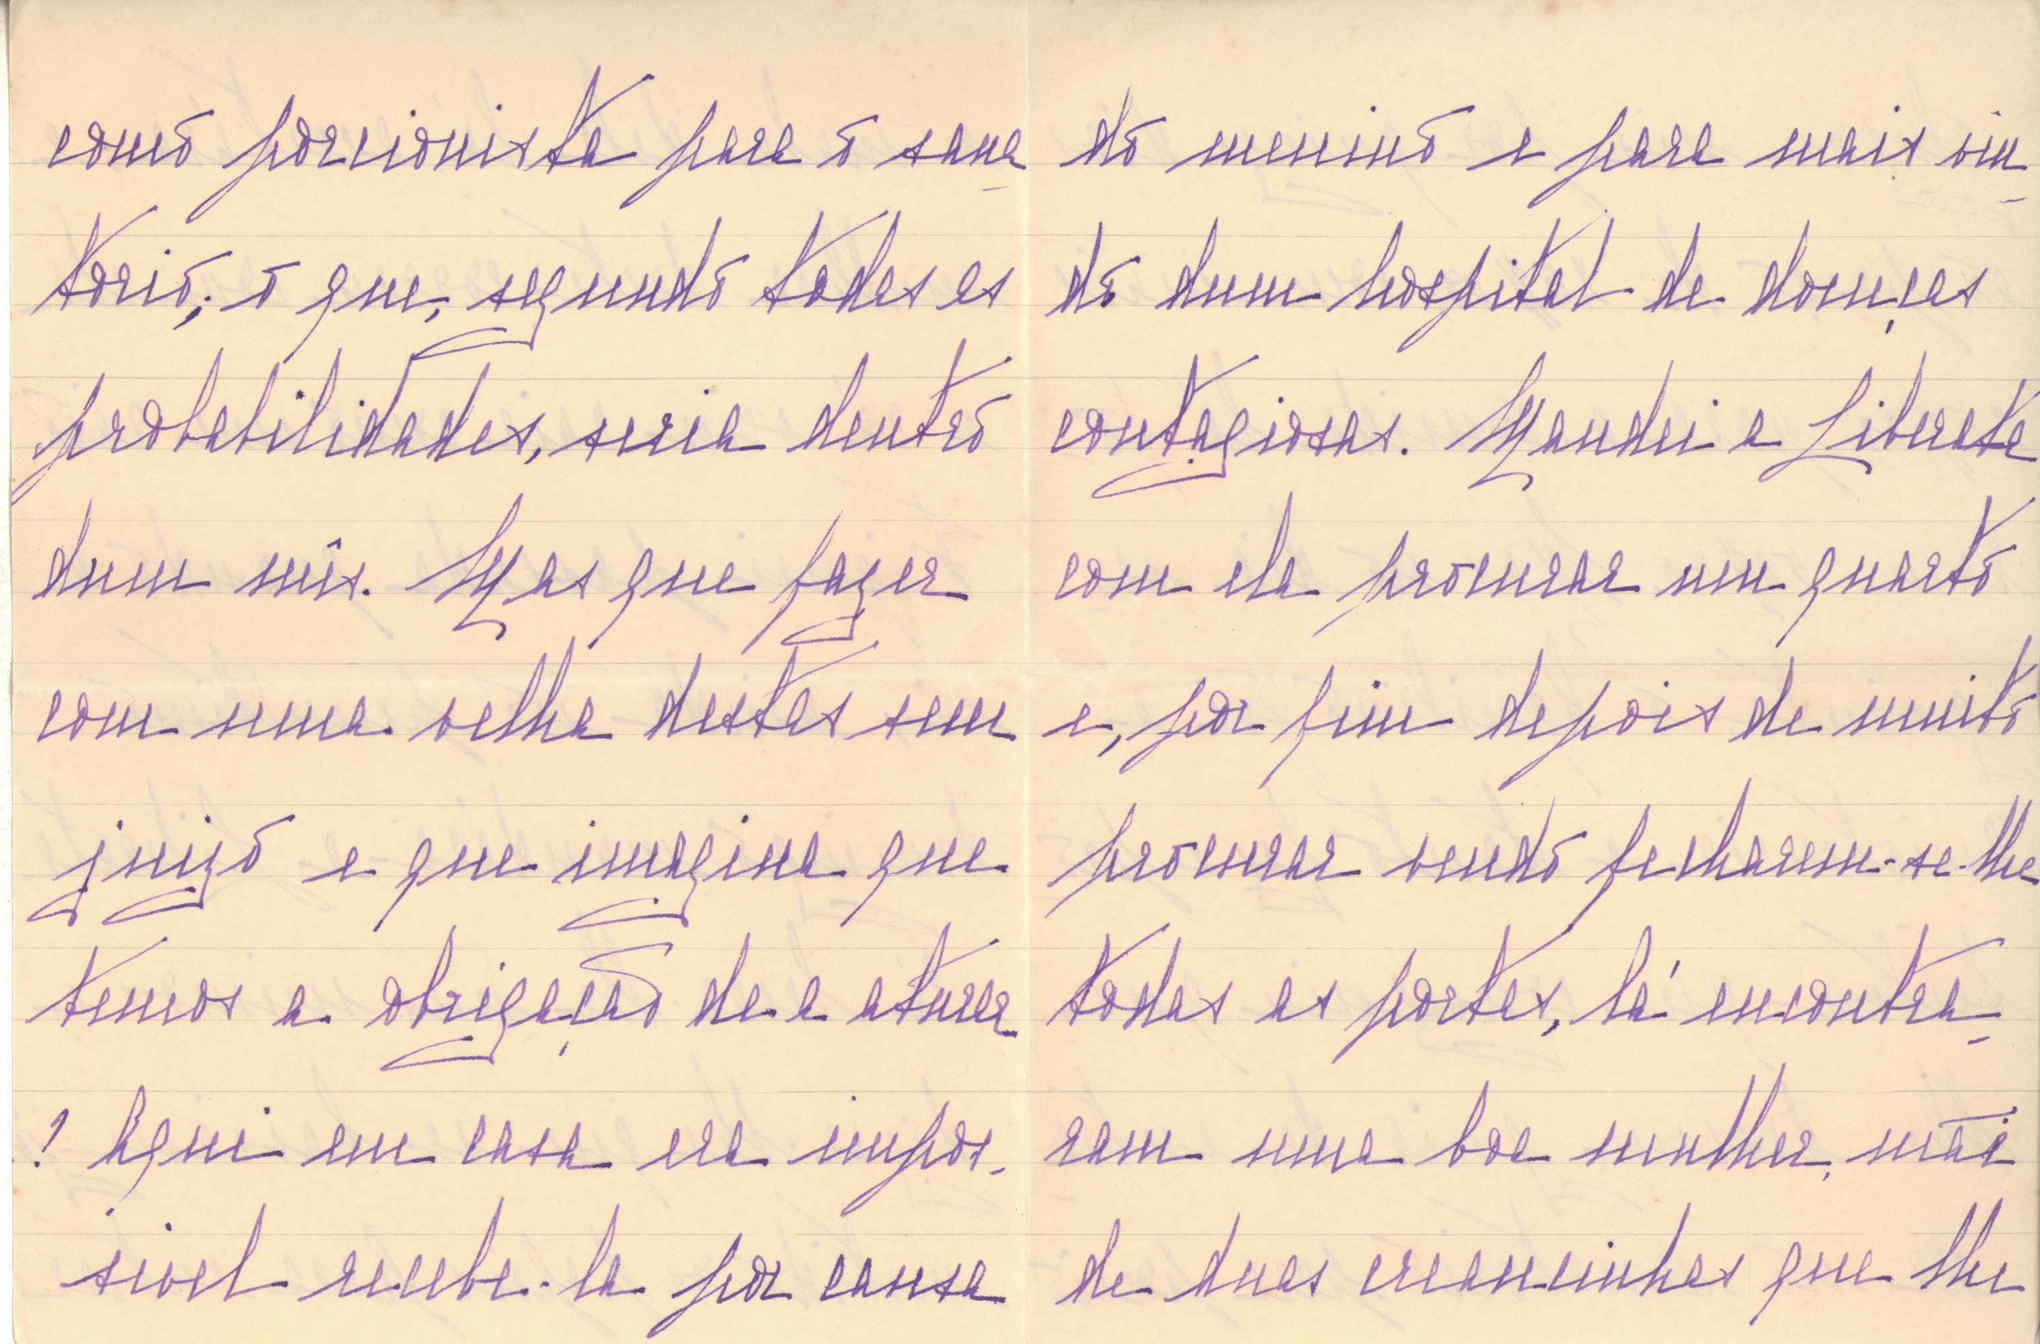 como porcionista para o sana
torio; o que, segundo todas as
probabilidades, seria dentro
dum mês. Mas que fazer
com uma velha destas sem
juizo e que imagina que
temos a obrigação de a aturar
? Aqui em casa era impos-
sivel recebe-la por causa
do menino e para mais vin_
do dum hospital de doenças
contagiosas. Mandei a Liberata
com ela procurar um quarto
e, por fim depois de muito
procurar vendo fecharem-se-lhe
todas as portas, lá encontra_
ram uma boa mulher, mãe
de duas creancinhas que lhe